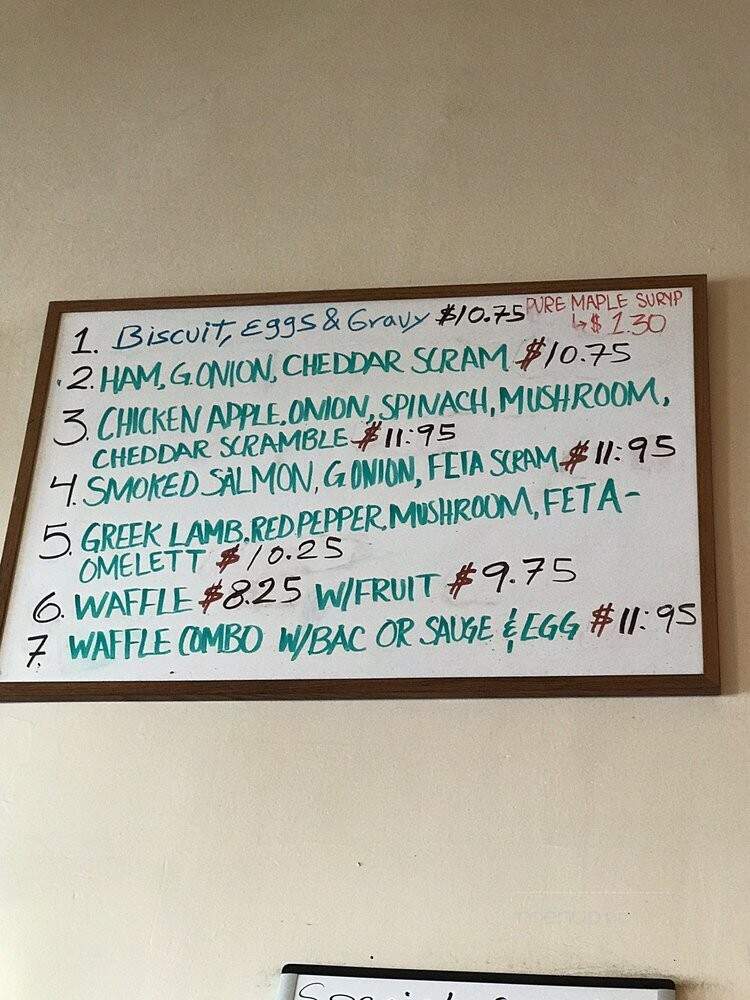 1. Biscuit, Eggs & Gravy $10.75
PURE MAPLE SURYP
↳$ 1.30
2. HAM, G.ONION, CHEDDAR SCRAM $10.75
3. CHICKEN APPLE, ONION, SPINACH, MUSHROOM,
CHEDDAR SCRAMBLE $11:95
4. SMOKED SALMON, G.ONION, FETA SCRAM $11:95
5. GREEK LAMB, RED PEPPER, MUSHROOM, FETA-
OMELETT $10.25
6. WAFFLE $8.25 W/FRUIT $9.75
7. WAFFLE COMBO W/BAC OR SAUGE & EGG $11:95